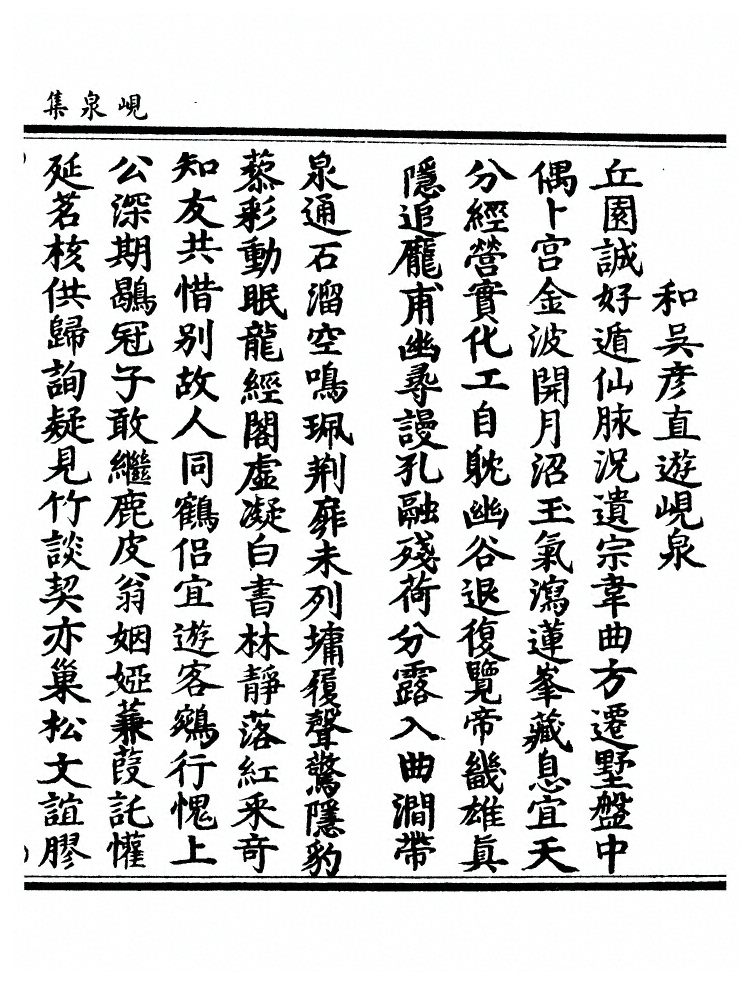 峴泉集
和吳彥直遊峴泉
丘園誠好遁仙脉況遺宗韋曲方遷墅盤中
偶卜宮金波開月沼玉氣瀉蓮峯藏息宜天
分經營實化工自躭幽谷退復覽帝畿雄真
隱追龐甫幽尋謾孔融殘荷分露入曲澗帶
泉通石溜空鳴珮荆扉未列墉履聲驚隱豹
藜彩動眠龍經閣虛凝白書林靜落紅采奇
知友共惜别故人同鶴侣宜遊客鵷行愧上
公深期鶡冠子敢繼鹿皮翁姻婭蒹葭託懽
延茗核供歸詢疑見竹談契亦巢松文誼膠